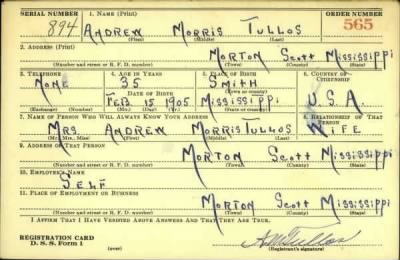 SERIAL NUMBER 1. NAME (Print) ORDER NUMBER
894 ANDREW MORRIS TULLOS 565
(First) (Middle) (Last)
2. ADDRESS (Print)
MORTON SCOTT MISSISSIPPI
(Number and street or R. F. D. number) (Town) (County) (State)
3. TELEPHONE 4. AGE IN YEARS 5. PLACE OF BIRTH 6. COUNTRY OF CITIZENSHIP
NONE 35 SMITH
DATE OF BIRTH (Town or county)
FEB. 15 1905 MISSISSIPPI U.S.A.
(Exchange) (Number) (Mo.) (Day) (Yr.) (State or country)
7. NAME OF PERSON WHO WILL ALWAYS KNOW YOUR ADDRESS 8. RELATIONSHIP OF THAT PERSON
MRS. ANDREW MORRIS TULLOS WIFE
(Mr., Mrs., Miss) (First) (Middle) (Last)
9. ADDRESS OF THAT PERSON
MORTON SCOTT MISSISSIPPI
(Number and street or R. F. D. number) (Town) (County) (State)
10. EMPLOYER'S NAME
SELF
11. PLACE OF EMPLOYMENT OR BUSINESS
MORTON SCOTT MISSISSIPPI
(Number and street or R. F. D. number) (Town) (County) (State)
I AFFIRM THAT I HAVE VERIFIED ABOVE ANSWERS AND THAT THEY ARE TRUE.
REGISTRATION CARD
D. S. S. Form 1 (over) A M Tullos
(Registrant's signature)